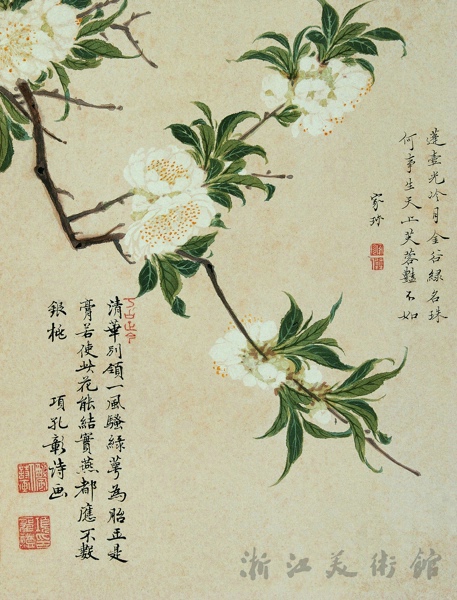 蓬壺光冷月金谷綠名珠
何事生天上芙蓉豔不如
家珍
清華別領一風騷綠萼為胎正是
膏若使此花能結實燕都應不數
銀桃
項孔彰詩画
浙江美術館